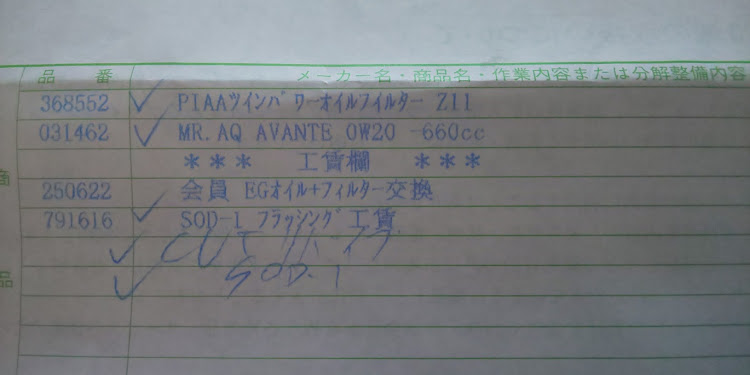 品 番 メーカー名・商品名・作業内容または分解整備内容
368552 PIAAツインパワーオイルフィルター Z11
031462 MR.AQ AVANTE 0W20 -660cc
商 *** 工賃欄 ***
250622 会員 EGオイル+フィルター交換
791616 SOD-1 フラッシング工賃
CVT
品 SOD-1